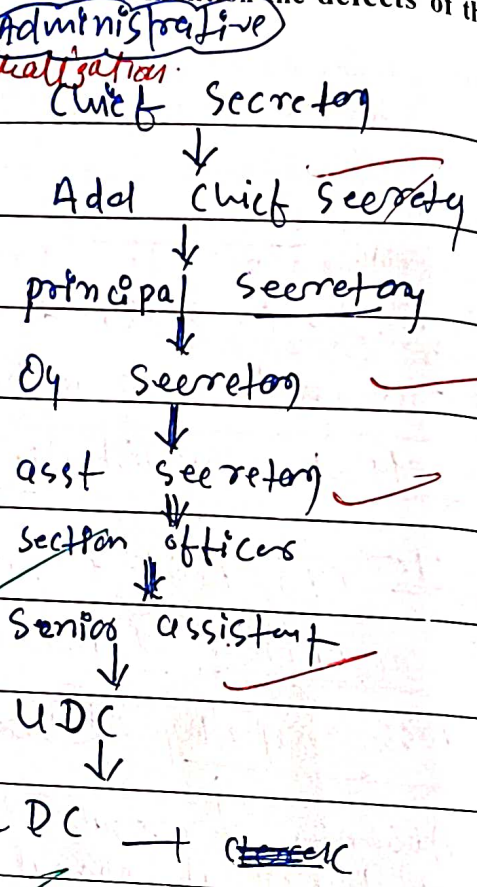 defects of th
Administrative
Chief Secretary
↓
Add Chief Secretary
↓
principal Secretary
↓
Dy Secretary
↓
asst Secretary
↓
Section officer
↓
Senior assistant
↓
UDC
↓
DC